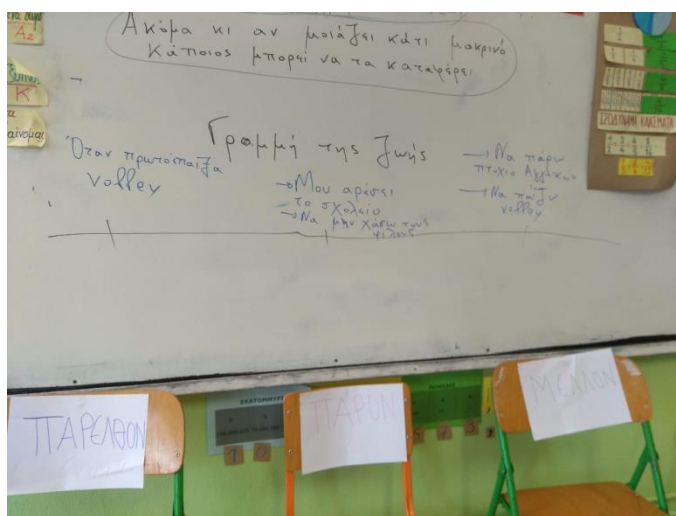 Αζ
Κ
αίνομαι
Ακόμα κι αν μοιάζει κάτι μακρινό
Κάποιος μπορεί να τα καταφέρει
Γραμμή της ζωής
Όταν πρωτόπαιξα
volley
→ Μου αρέσει
το σχολείο
→ Να μην χάσω τους
φίλους
→ Να πάρω
πτυχίο Αγγλικών
→ Να παίζω
volley
ΙΣΟΔΥΝΑΜΑ ΚΛΑΣΜΑΤΑ
ΠΑΡΕΛΘΟΝ
ΠΑΡΟΝ
ΜΕΛΛΟΝ
1 0